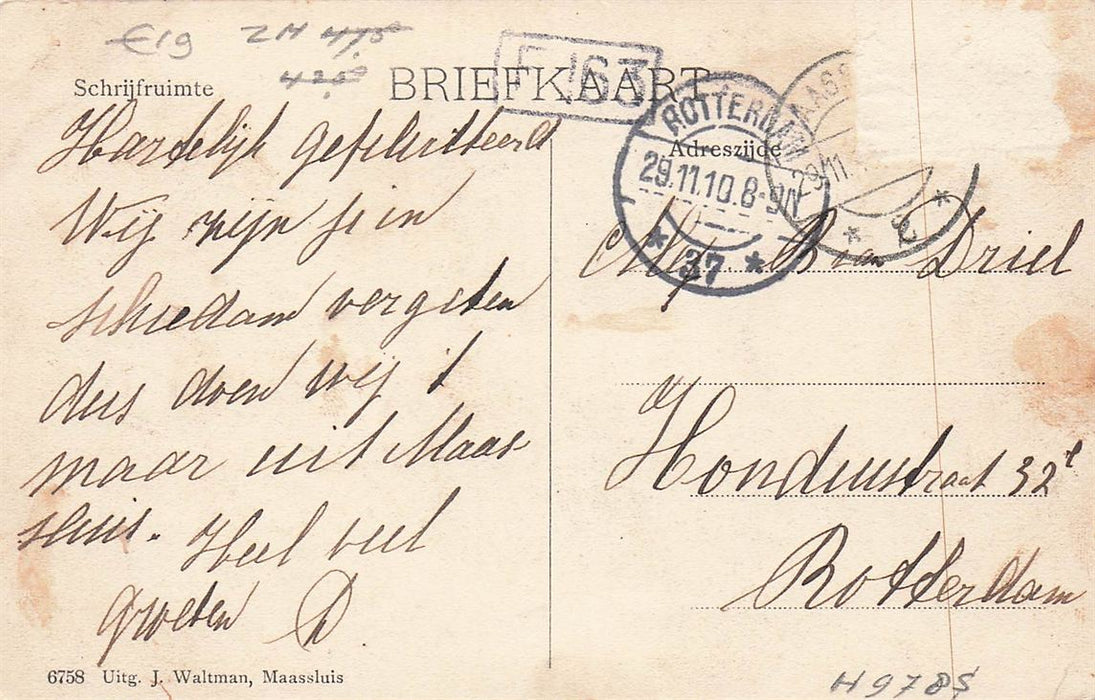 €19 ZH 475
425
F 163
Schrijfruimte
BRIEFKAART
Adreszijde
ROTTERDAM
29.11.10.8-9N
37
MAASS
29.11
Hartelijk gefeliciteerd
Wij zijn je in
schiedam vergeten
dus doen wij 't
maar uit Maas-
sluis. Heel veel
groeten D
Driel
32
Rotterdam
6758 Uitg. J. Waltman, Maassluis
H9785